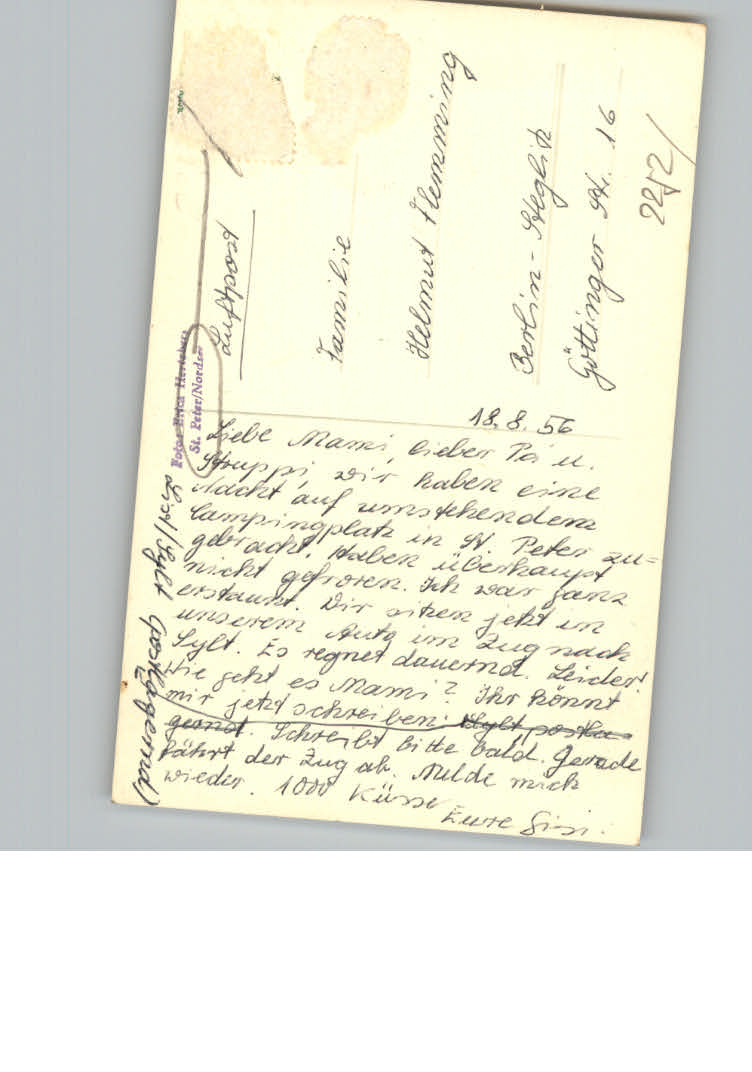 18.8.56
Liebe Mami, lieber Pa u.
Struppi, wir haben eine
Nacht auf umstehendem
Campingplatz in St. Peter zu=
gebracht. Haben überhaupt
nicht gefroren. Ich war ganz
erstaunt. Wir sitzen jetzt in
unserem Auto im Zug nach
Sylt. Es regnet dauernd. Leider!
Wie geht es Mami? Ihr könnt
mir jetzt schreiben: Sylt postla=
gernd. Schreibt bitte bald. Gerade
fährt der Zug ab. Melde mich
wieder. 1000 Küsse
Eure
List/Sylt (postlagernd)
Foto: Erica
St. Peter/Nordsee
Luftpost
Familie
Helmut Flemming
Berlin-Steglitz
Göttinger Str. 16
2252/